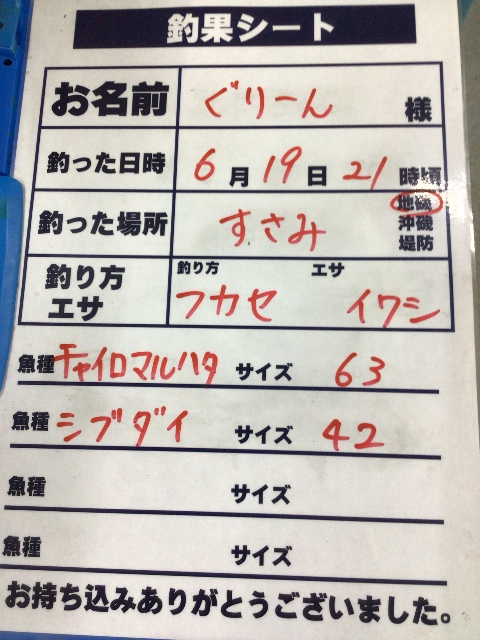 釣果シート
お名前 ぐりーん 様
釣った日時 6月19日21時頃
釣った場所 すさみ 地磯 沖磯 堤防
釣り方 エサ 釣り方 フカセ エサ イワシ
魚種 チャイロマルハタ サイズ 63
魚種 シブダイ サイズ 42
魚種 サイズ
魚種 サイズ
お持ち込みありがとうございました。